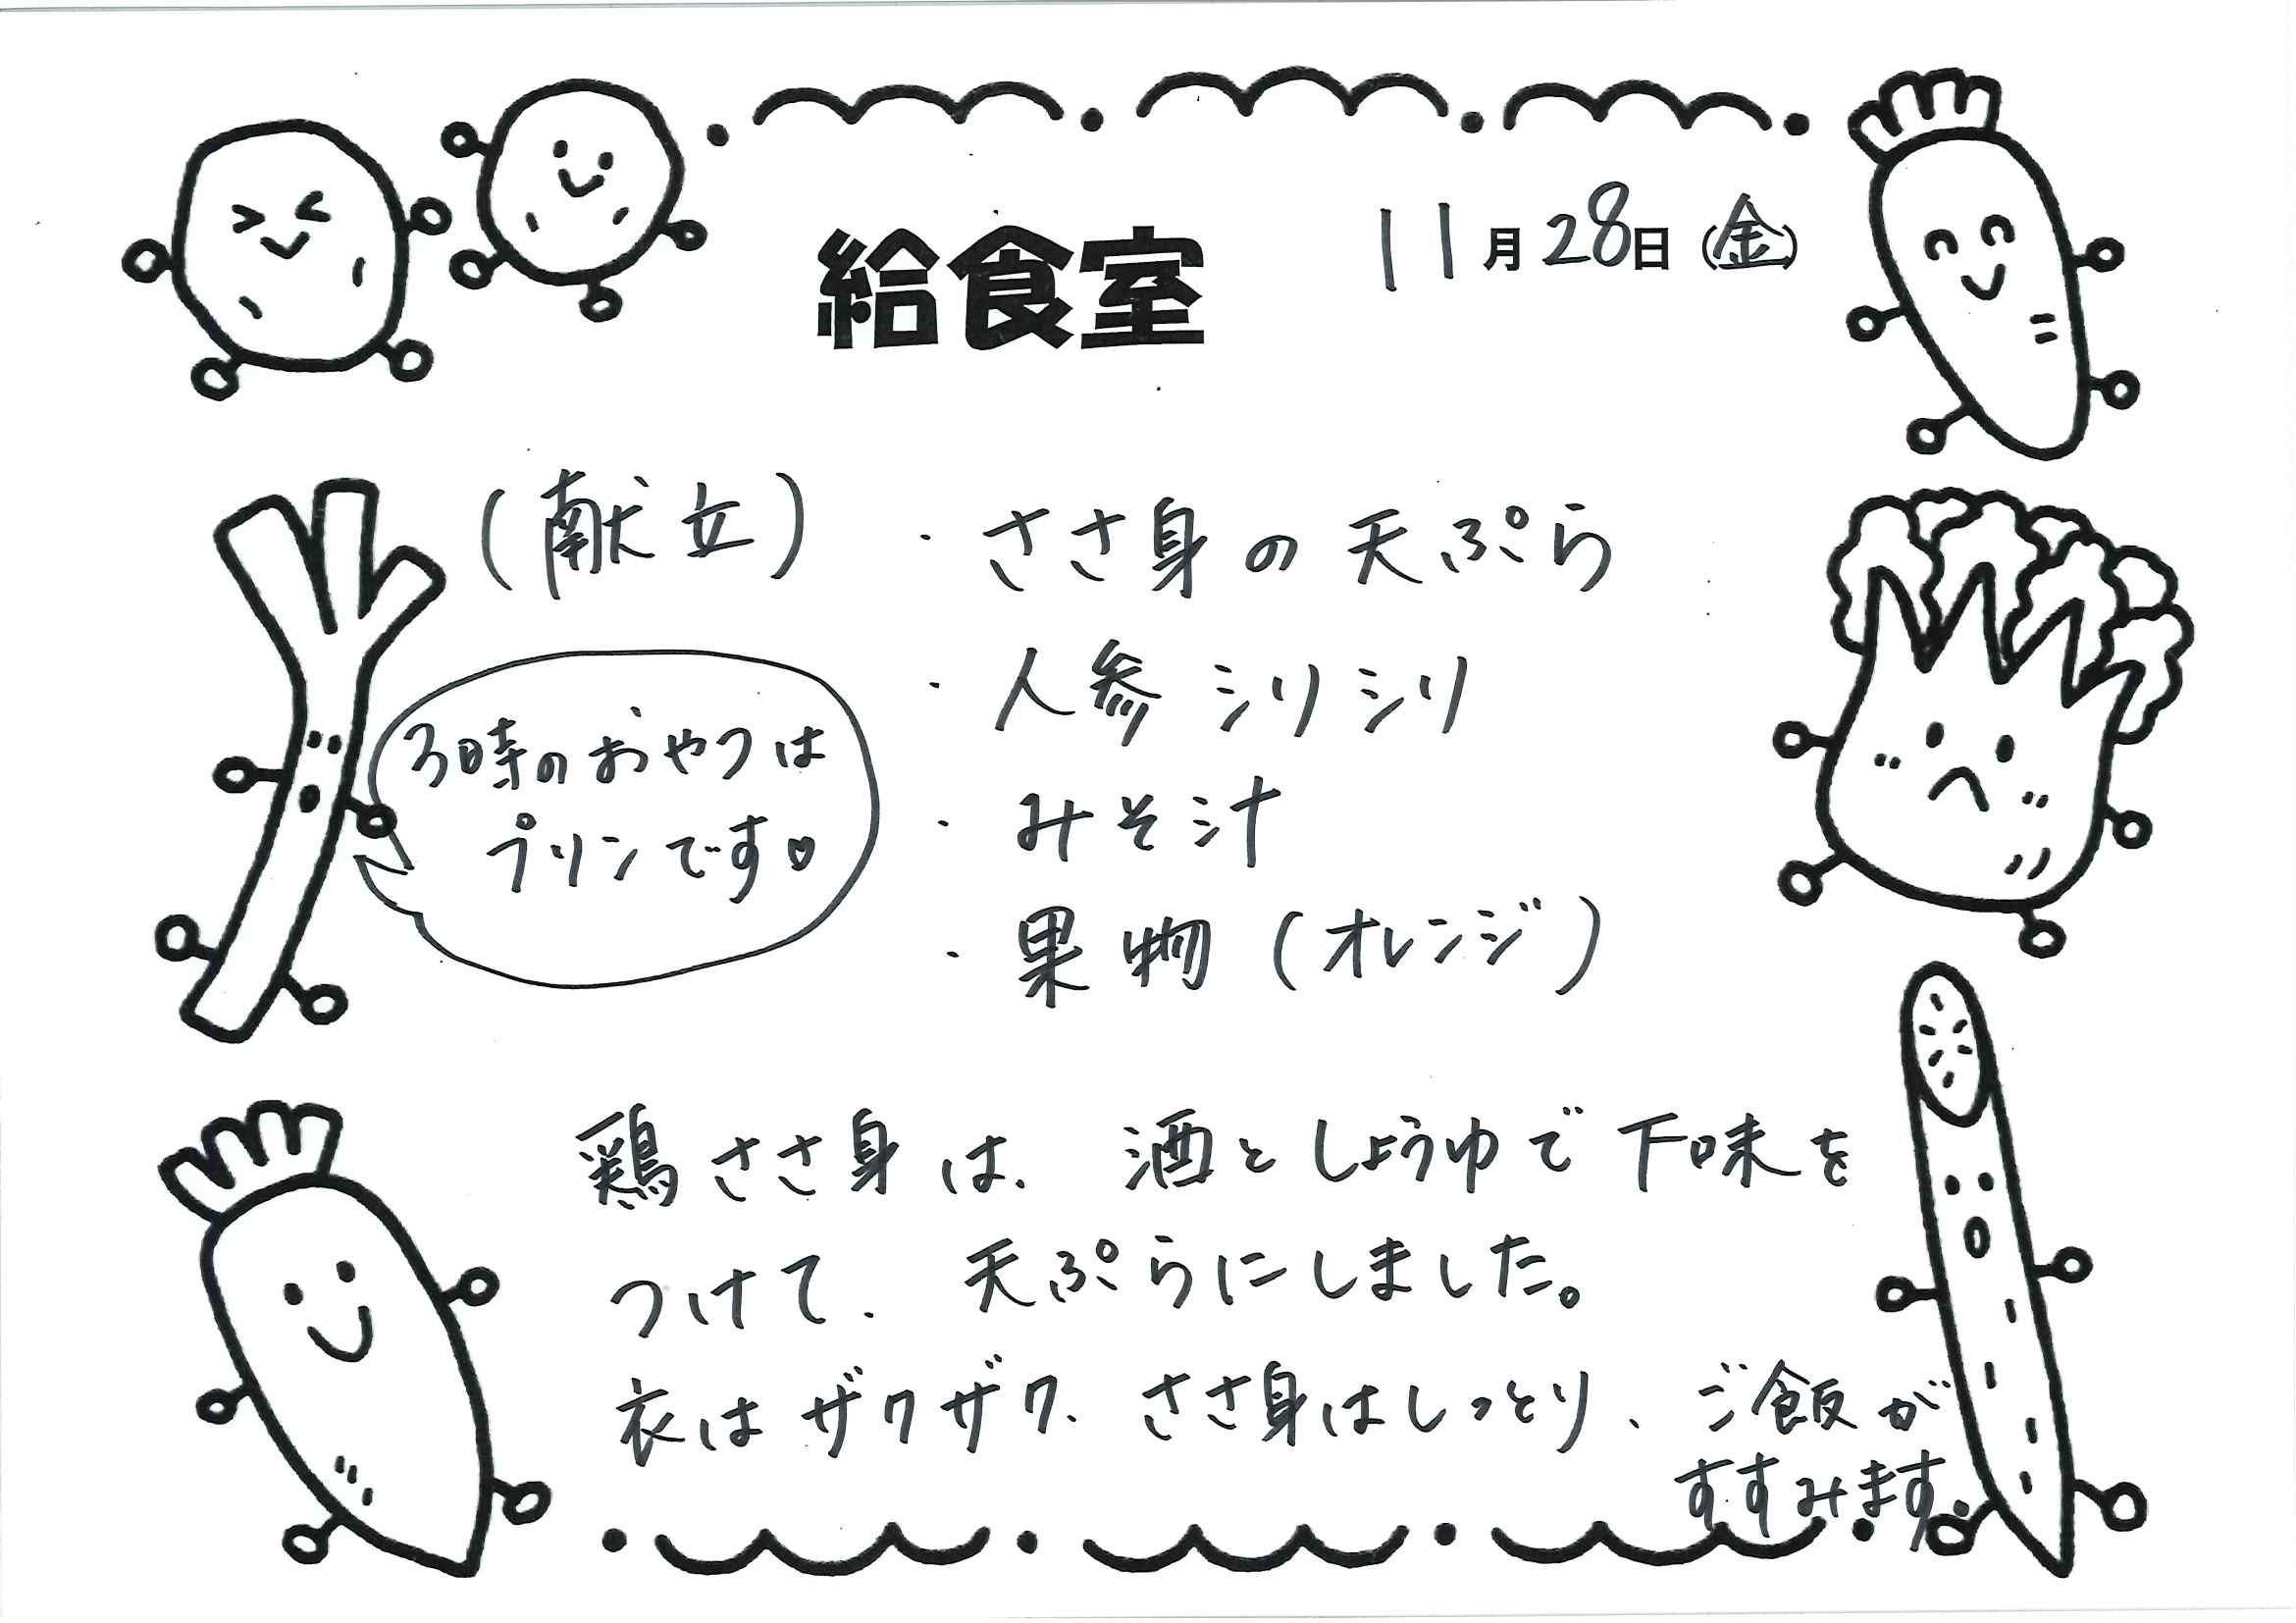 給食室
11月28日(金)
(献立)
・ささ身の天ぷら
・人参シリシリ
・みそ汁
・果物(オレンジ)
3時のおやつは
プリンです♡
鶏ささ身は、酒としょうゆで下味を
つけて、天ぷらにしました。
衣はザクザク、ささ身はしっとり、ご飯が
すすみます。